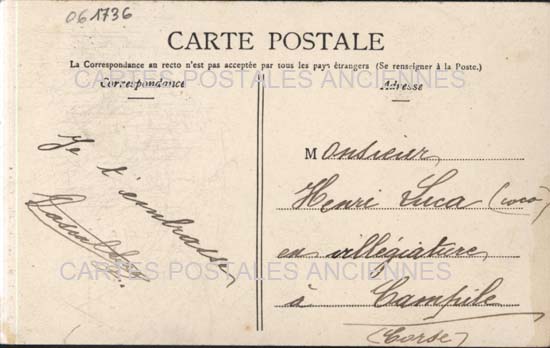 061736
CARTE POSTALE
La Correspondance au recto n'est pas acceptée par tous les pays étrangers (Se renseigner à la Poste.)
CARTES POSTALES ANCIENNES
Correspondance
Je t'embrasse
Adresse
Monsieur
Henri Luca (coco)
en villégiature
à Campile
(Corse)
CARTES POSTALES ANCIENNES